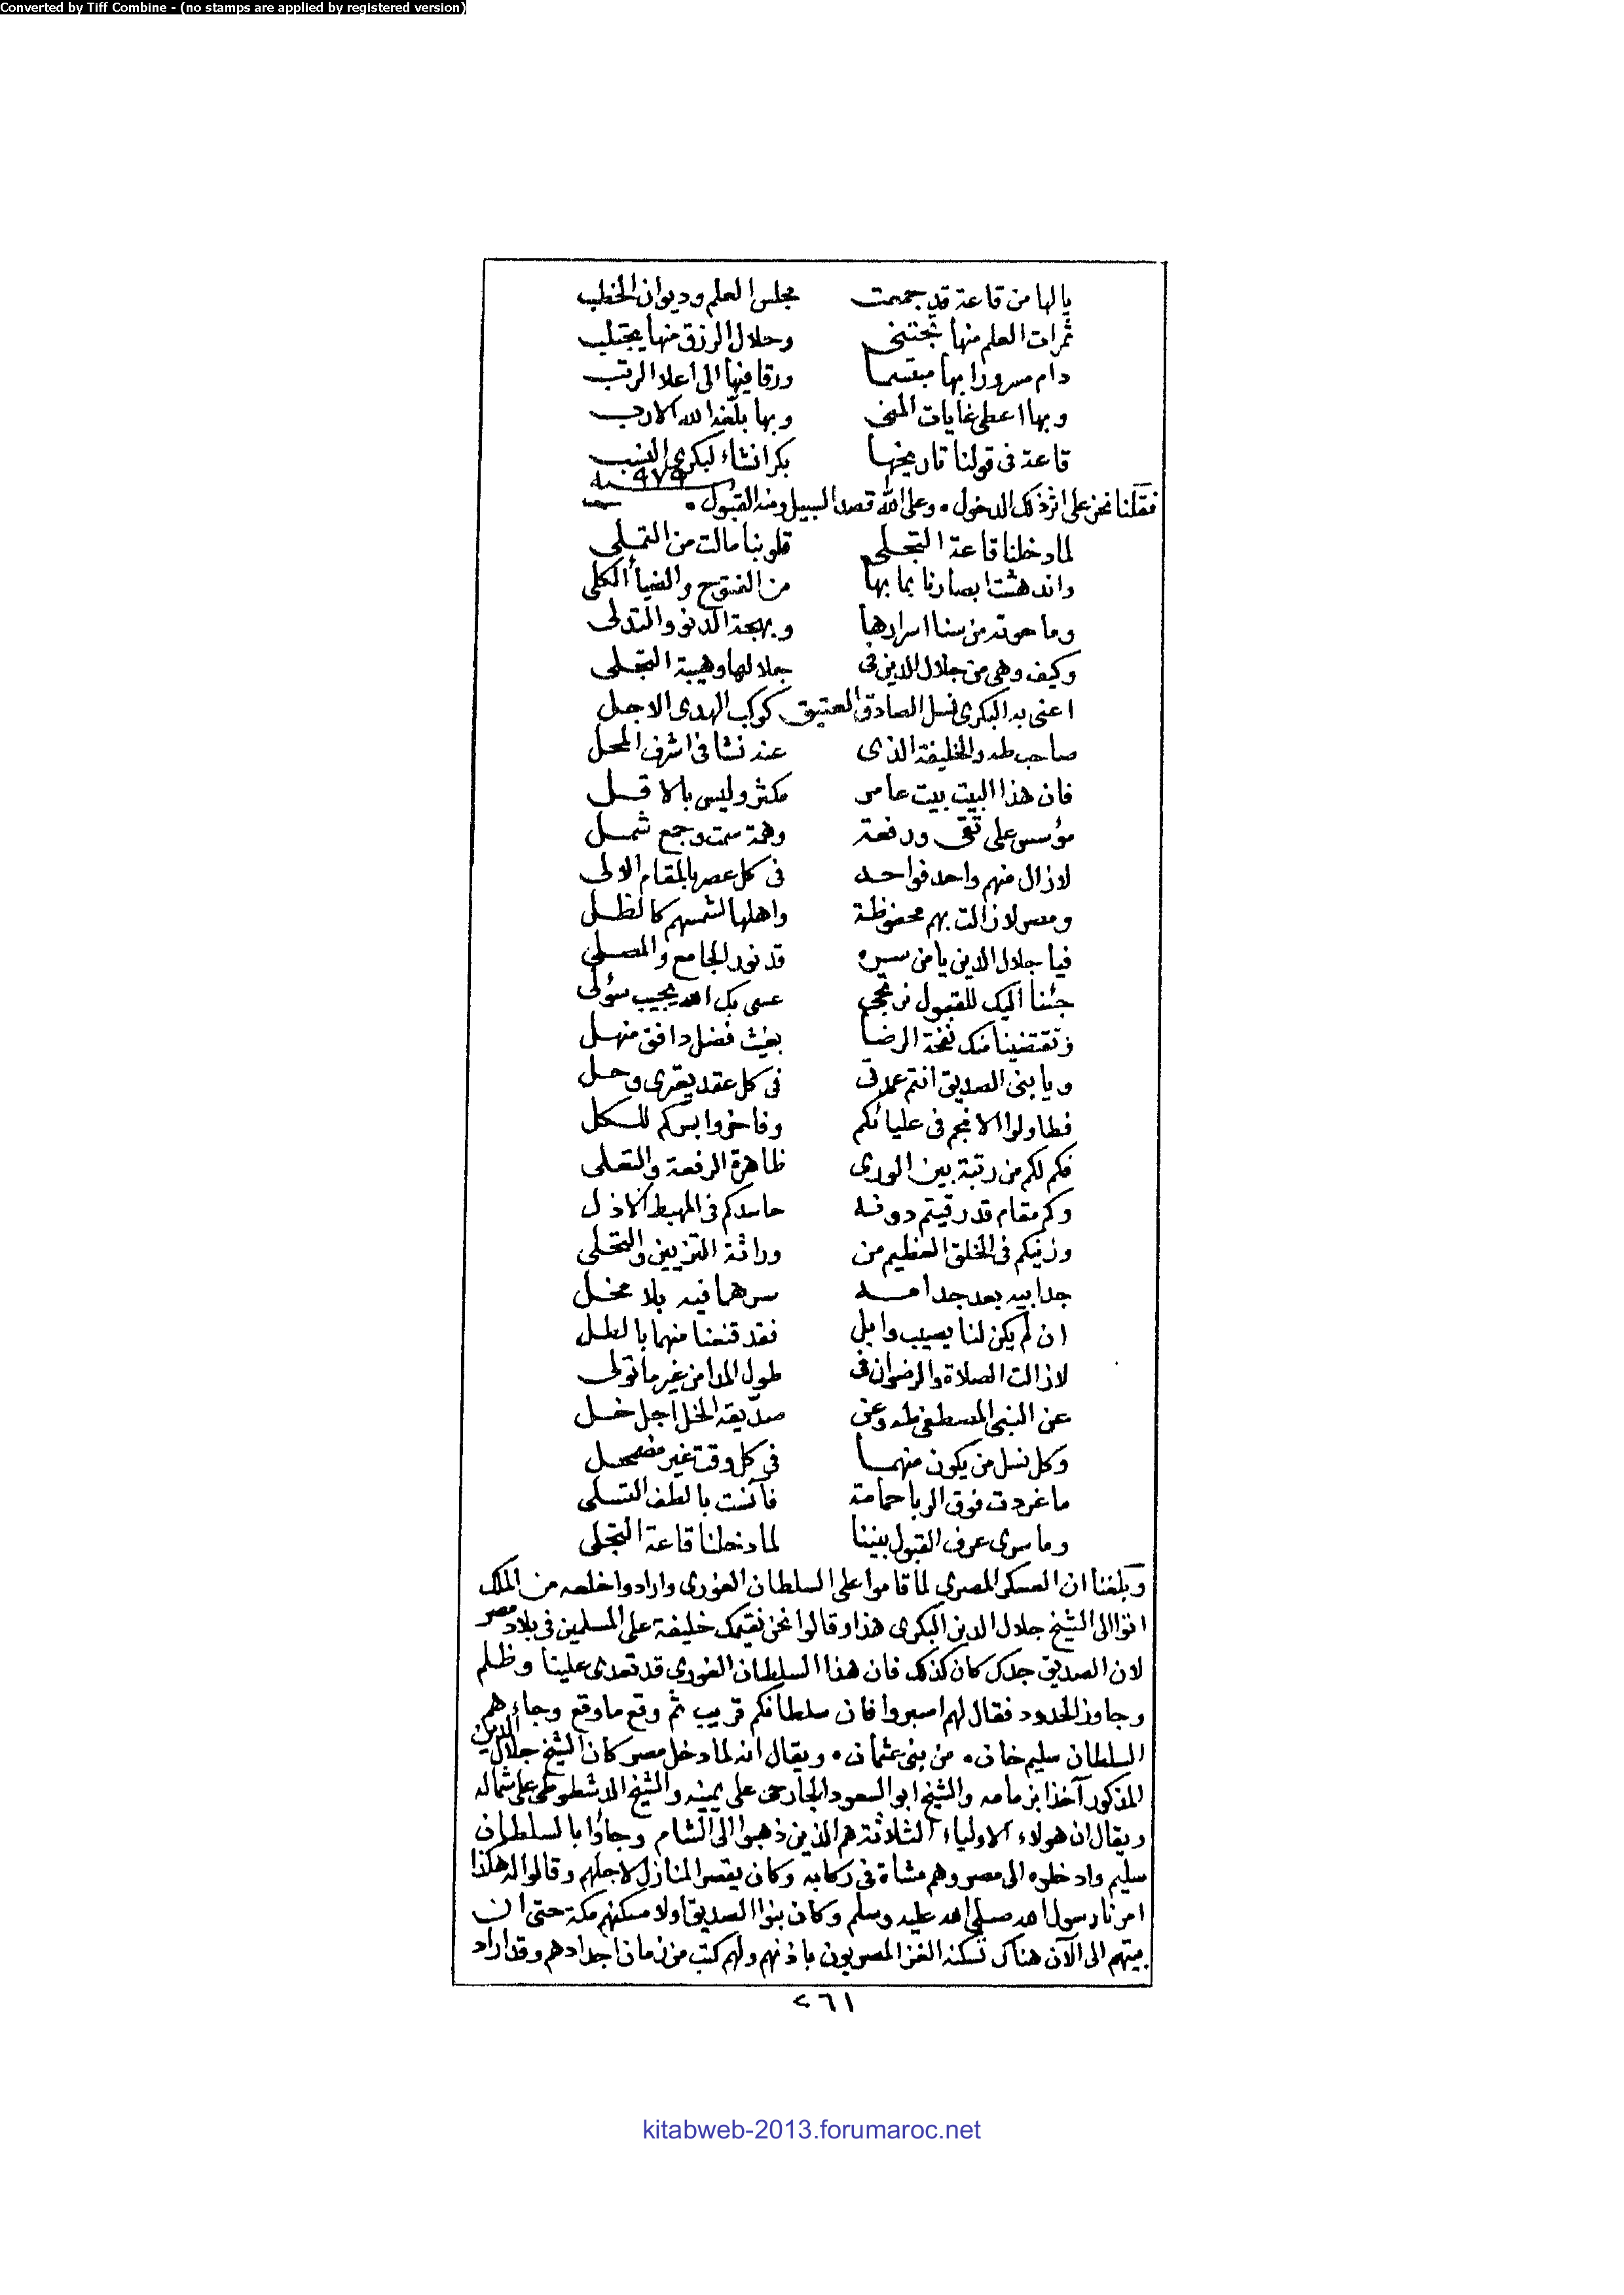 Converted by Tiff Combine - (no stamps are applied by registered version)
يالها من قاعة قد جمعت مجلس العلم وديوان الخطب
ثمرات العلم منها تجتنى وحلال الرزق منها يجتلب
دام مسرورا بها مبتسما ورقا فيها الى اعلا الرتب
وبها اعطى غايات المنى وبها بلغه الله الارب
قاعة فى قولنا تاريخها بكر انشاء لبكرى النسب
سنة ٩٧٩
فقلنا نحن على اثر ذلك الدخول • وعلى الله قصد السبيل ومنه القبول •
لما دخلنا قاعة التجلى قلوبنا مالت من التملى
واندهشت ابصارنا بما بها من الفتوح والضياء الكلى
وما حوته من سنا اسرارها وبهجة الدنو والتدلى
وكيف وهى من جلال الدين فى جلالها وهيبة التجلى
اعنى به البكرى نسل الصادق العتيق كوكب الهدى الاجل
صاحب طه والخليفة الذى عنه نشا فى اشرف المحل
فان هذا البيت بيت عامر مكثر وليس بالاقل
مؤسس على تقى ورفعة وهمة سمت وجمع شمل
لازال منهم واحد فواحد فى كل عصر بالمقام الاولى
ومصر لازالت بهم محفوظة واهلها لشمسهم كالظل
فيا جلال الدين يا من سره قد نور الجامع والمصلى
جئنا اليك للقبول نرتجى عسى بك الله يجيب سؤلى
وتقتضينا منك نفحة الرضا بغيث فضل دافق منهل
ويا بنى الصديق انتم عمدتى فى كل عقد يعترى وحل
فطاولوا الانجم فى عليائكم وفاخروا بسركم للكل
فكم لكم من رتبة بين الورى ظاهرة الرفعة والتعلى
وكم مقام قد رقيتم دونه حاسدكم فى المهبط الاذل
وزينكم فى الخلق العظيم من وراثة التزيين والتحلى
جد ابيه بعد جد امه سرهما فيه بلا مخل
ان لم يكن لنا يصيب وابل فقد قنعنا منهما بالطل
لازالت الصلاة والرضوان فى طول المدا من غير ما تولى
عن النبى المصطفى طه وعن صديقه الخل اجل خل
وكل نسل من يكون منهما فى كل وقت غير مضمحل
ما غردت فوق الربا حمامة فآنست بالطف التسلى
وما سرى عرف القبول بيننا لما دخلنا قاعة التجلى
وبلغنا ان العسكر المصرى لما قاموا على السلطان الغورى وارادوا خلعه من الملك
اتوا الى الشيخ جلال الدين البكرى هذا وقالوا نحن نقيمك خليفة على المسلمين فى بلاد مصر
لان الصديق جدك كان كذلك فان هذا السلطان الغورى قد تعدى علينا وظلم
وجاوز الحدود فقال لهم اصبروا فان سلطانكم قريب ثم وقع ما وقع وجاءهم
السلطان سليم خان • من بنى عثمان • ويقال انه لما دخل مصر كان الشيخ جلال الدين
المذكور آخذا بزمامه والشيخ ابو السعود الجارحى على يمينه والشيخ الدشطوطى على شماله
ويقال ان هولاء الاولياء الثلاثة هم الذين ذهبوا الى الشام وجاؤا بالسلطان
سليم وادخلوه الى مصر وهم مشاة فى ركابه وكان يقصر المنازل لاجلهم وقالوا له هكذا
امرنا رسول الله صلى الله عليه وسلم وكان بنوا الصديق اولا مسكنهم مكة حتى ان
بيتهم الى الآن هناك تسكنه الغز المصريون باذنهم ولهم كتب من زمان اجدادهم وقد اراد
٢٦١
kitabweb-2013.forumaroc.net